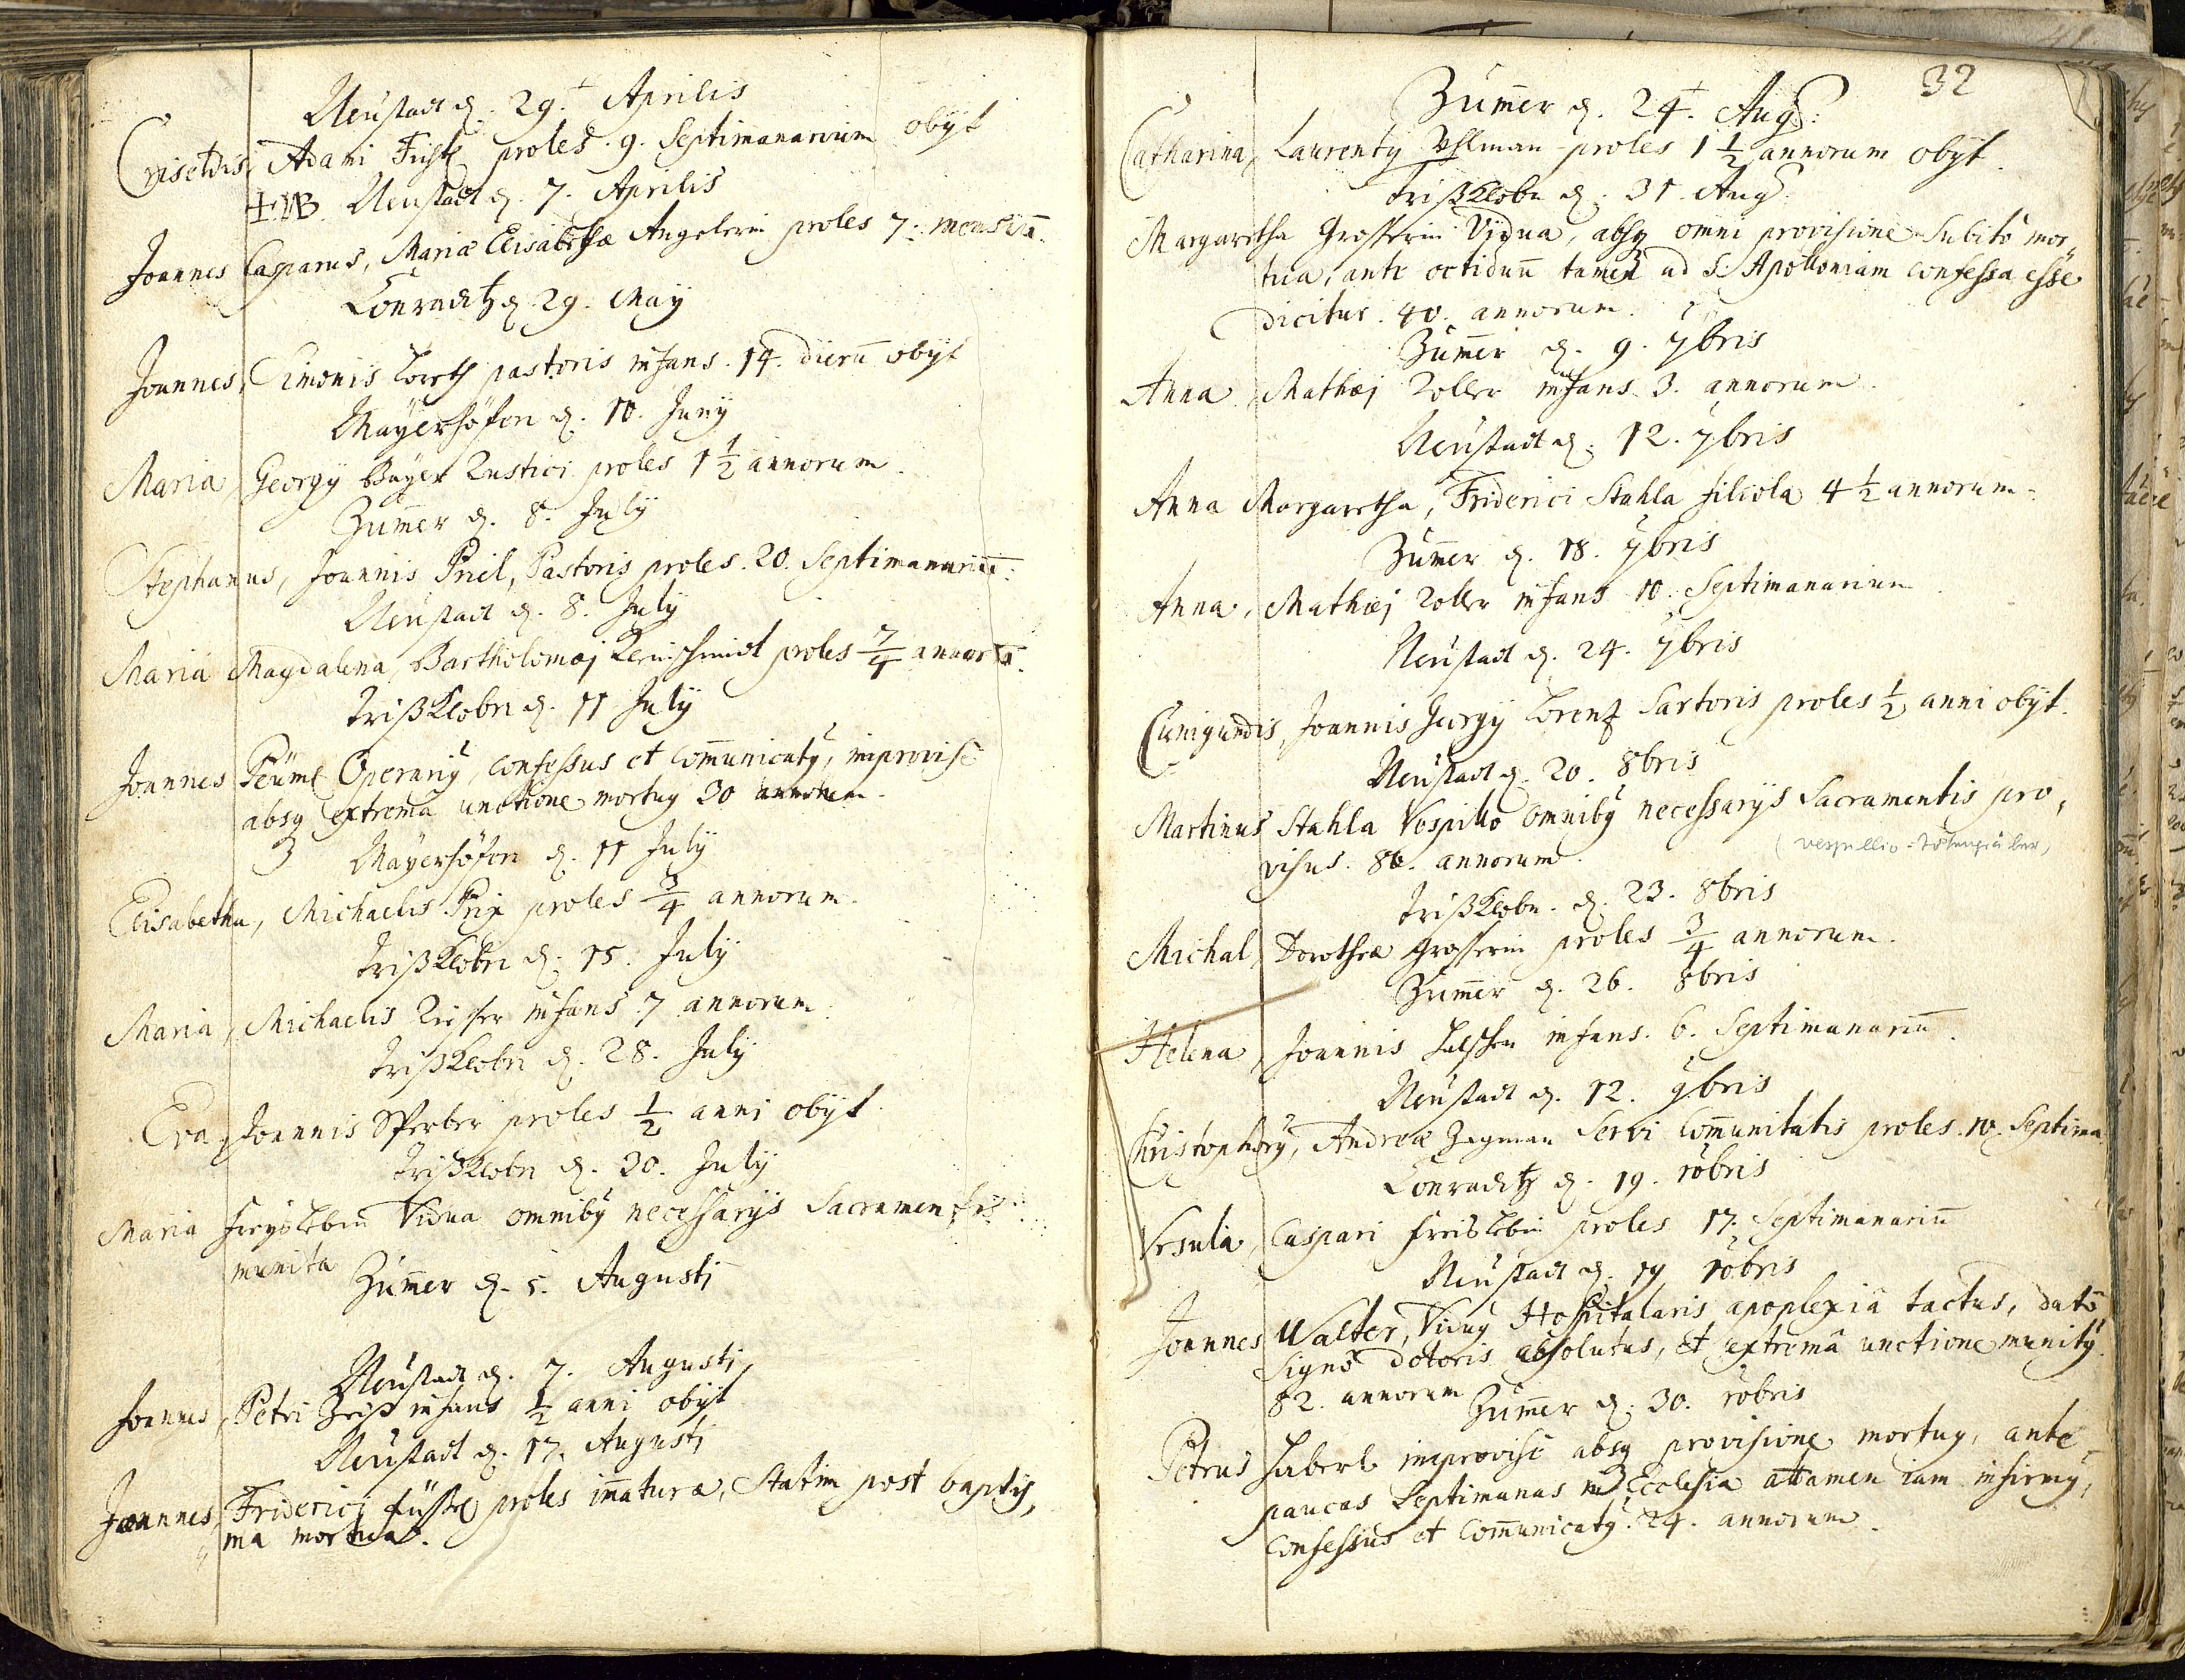 Neustadt d. 29. Aprilis
Criseldis, Adami Fuchs proles 9. Septimanarum obijt
NB. Neustadt d. 7. Aprilis
Joannes Casparus, Maria Elisabetha Angelerin proles 7. mensiū.
Conraditz d. 29. Maÿ
Joannes, Simonis Loreth pastoris infans 14. dierū obijt
Mayerhöfen d. 10. Junÿ
Maria, Georgÿ Bayer Rustici proles 1 1/2 annorum.
Zum̄er d. 8. Julÿ
Stephanus, Joannis Priel, Pastoris proles 20. Septimanariū.
Neustadt d. 8. Julÿ
Maria Magdalena, Bartholomæj proles 7/4 annorū.
Trißklobn d. 11 Julÿ
Joannes Peüml Operarig, confessus et com̄unicatg, improvise
absq extrema unctione mortug 30 annorum.
Mayerhöfen d. 11 Julÿ
Elisabetha, Michaelis Prix proles 3/4 annorum.
Trißklobn d. 15. Julÿ
Maria, Michaelis infans 7 annorum.
Trißklobn d. 28. Julÿ
Eva, Joannis Sperber proles 1/2 anni obijt
Trißklobn d. 30. Julÿ
Maria Freysleben Vidua omnibg necessarijs Sacramentis
munita
Zum̄er d. 5. Augusti
Neustadt d. 7. Augusti
Joannes, Petri Zeiß infans 1/2 anni obijt
Neustadt d. 17. Augusti
Joannes, Friderici proles im̄atura, Statim post baptis,
ma mortua.
32
Zum̄er d. 24. Aug:
Catharina, Laurentÿ Uhlman proles 1 1/2 annorum obijt.
Trißklobn d. 31. Aug:
Margaretha Grosserin Vidua, absq omni provisione subito mor,
tua, ante octiduū tamen ad S. Apolloniam confessa esse
dicitur. 40. annorum.
Zum̄er d. 9. 7bris
Anna, Mathæj Zoller infans 3. annorum.
Neustadt d. 12. 7bris
Anna Margaretha, Friderici Stahla filiola 4 1/2 annorum.
Zum̄er d. 18. 7bris
Anna, Mathæj Zoller infans 10. Septimanarium
Neustadt d. 24. 7bris
Cunigundis, Joannis Georgÿ Lorenz Sartoris proles 1/2 anni obijt.
Neustadt d. 20. 8bris
Martinus Stahla Vespillo omnibg necessarijs Sacramentis pro,
visus. 86. annorum.
Trißklobn. d. 23. 8bris
Michal, Dorotheæ Grosserin proles 3/4 annorum.
Zum̄er d. 26. 8bris
Helena, Joannis infans. 6. Septimanariū.
Neustadt d. 12. 9bris
Christophorg, Andreæ Zagman Servi Com̄unitatis proles. 10. Septima
Conraditz d. 19. 10bris
Ursula, Caspari Freisleben proles 17. Septimanariū
Neustadt d. 19 10bris
Joannes Walter, Vidug Hospitalaris apoplexiâ tactus, datô
signô doloris absolutus, et extremâ unctione munitg.
82. annorum
Zum̄er d. 30. 10bris
Petrus Haberl improvise absq provisione mortug, ante
paucas Septimanas in Ecclesia attamen iam infirmg,
Confessus et Com̄unicatg. 24. annorum.